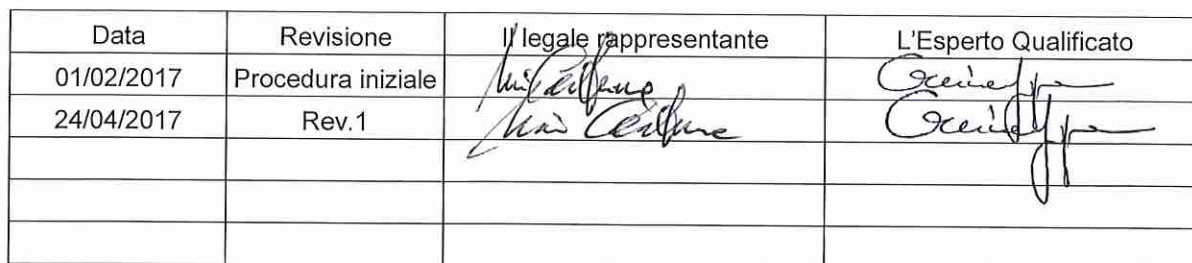 Data Revisione Il legale rappresentante L'Esperto Qualificato
01/02/2017 Procedura iniziale
24/04/2017 Rev.1